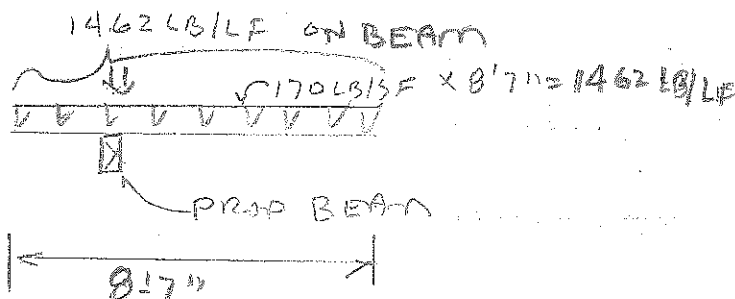 1462 LB/LF ON BEAM
170 LB/SF x 8'7" = 1462 LB/LF
PROP BEAM
8'7"